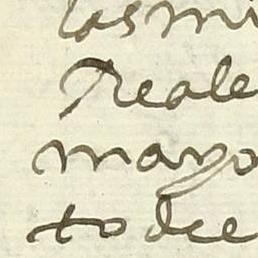 las mi
Reale
mayo
todce